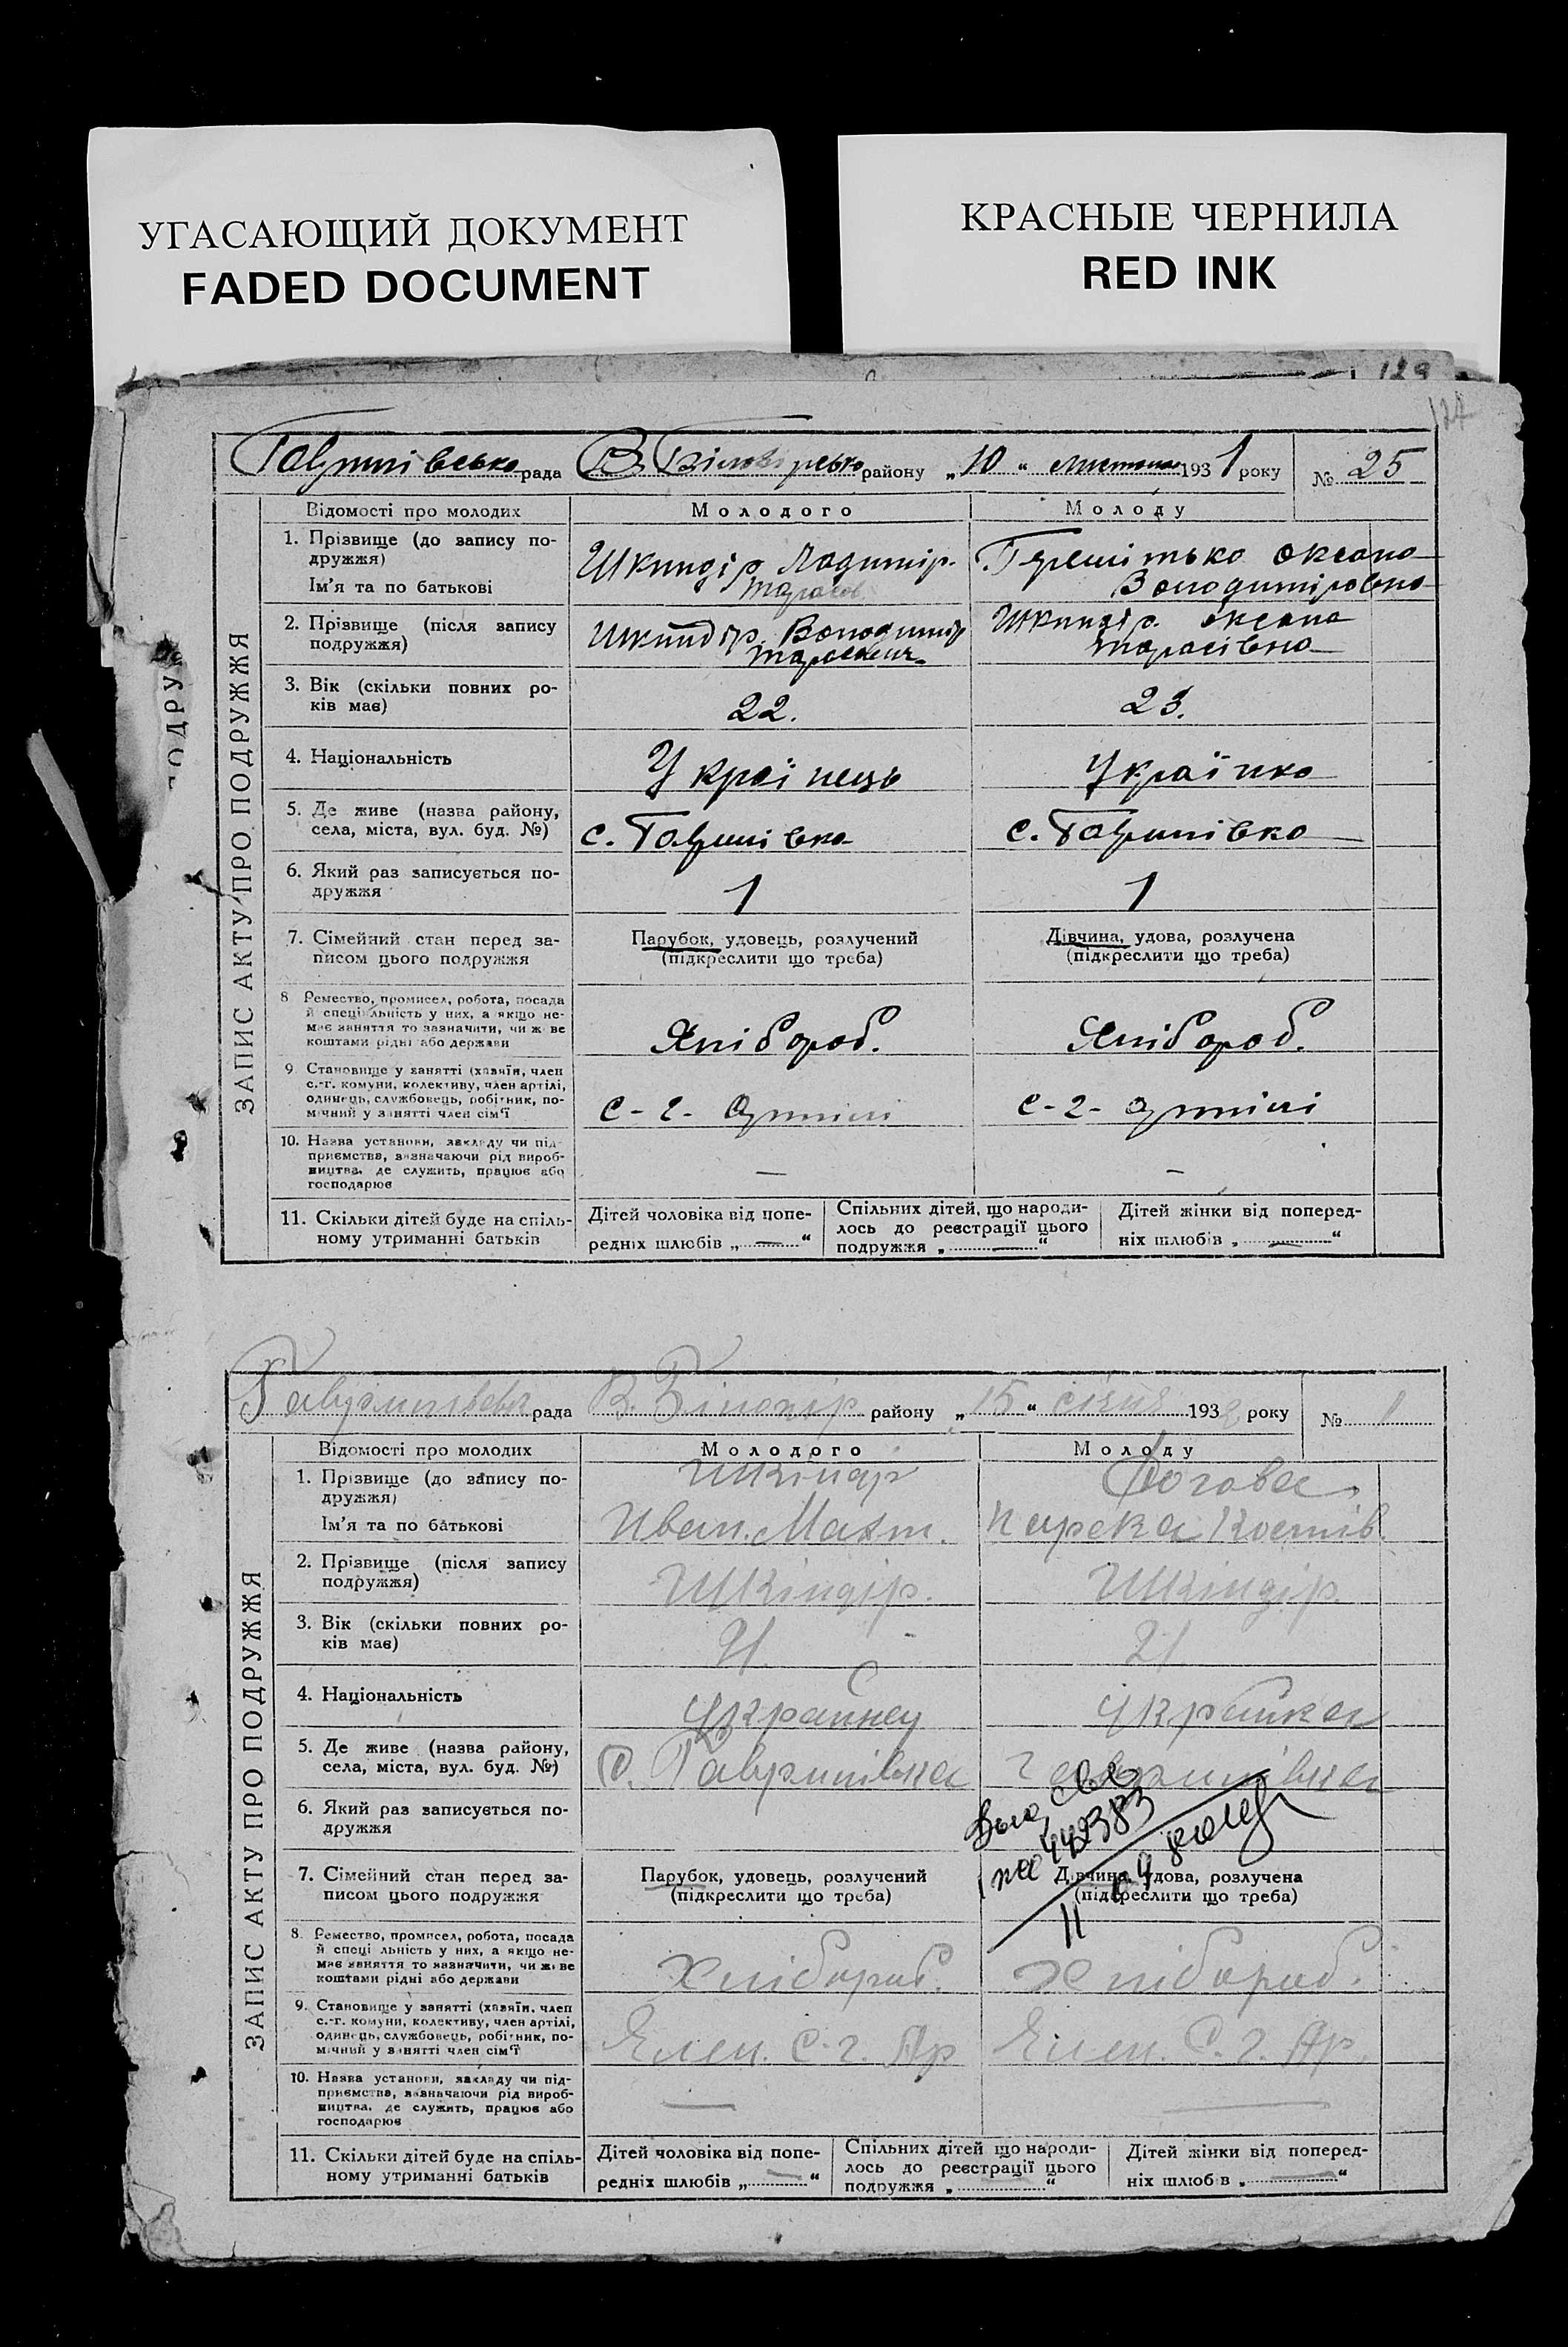 УГАСАЮЩИЙ ДОКУМЕНТ
FADED DOCUMENT
КРАСНЫЕ ЧЕРНИЛА
RED INK
129
127
рада района „10“ 1931 року № 25
ЗАПИС АКТУ ПРО ПОДРУЖЖЯ
Відомості про молодих
Молодого
Молоду
1. Прізвище (до запису по-
дружжя)
Ім'я та по батькові
Шкиндір
Тарасов
Оксана
Володимировна
2. Прізвище (після запису
подружжя)
Шкиндір Володимир
Тарасович
Шкиндір Оксана
Тарасівна
3. Вік (скільки повних ро-
ків має)
22.
23.
4. Національність
Українець
Українка
5. Де живе (назва району,
села, міста, вул. буд. №)
с.
с.
6. Який раз записується по-
дружжя
1
1
7. Сімейний стан перед за-
писом цього подружжя
Парубок, удовець, розлучений
(підкреслити що треба)
Дівчина, удова, розлучена
(підкреслити що треба)
8. Ремество, промисел, робота, посада
й спеціальність у них, а якщо не-
має заняття то зазначити, чи живе
коштами рідні або держави
Хлібороб.
Хлібороб.
9. Становище у занятті (хазяїн, член
с.-г. комуни, колективу, член артілі,
одинець, службовець, робітник, по-
мічний у занятті член сім'ї
с-г- артілі
с-г- артілі
10. Назва установи, закладу чи під-
приємства, зазначаючи рід вироб-
ництва, де служить, працює або
господарює
—
—
11. Скільки дітей буде на спіль-
ному утриманні батьків
Дітей чоловіка від попе-
редніх шлюбів „—“
Спільних дітей, що народи-
лось до реєстрації цього
подружжя „—“
Дітей жінки від поперед-
ніх шлюбів „—“
рада району „15“ січня 1932 року № 1
ЗАПИС АКТУ ПРО ПОДРУЖЖЯ
Відомості про молодих
Молодого
Молоду
1. Прізвище (до запису по-
дружжя)
Ім'я та по батькові
Шкіндір
Иван.
Параска Костів.
2. Прізвище (після запису
подружжя)
Шкіндір.
Шкіндір.
3. Вік (скільки повних ро-
ків має)
21.
21
4. Національність
5. Де живе (назва району,
села, міста, вул. буд. №)
с.
6. Який раз записується по-
дружжя
442383
7. Сімейний стан перед за-
писом цього подружжя
Парубок, удовець, розлучений
(підкреслити що треба)
Дівчина, удова, розлучена
(підкреслити що треба)
8. Ремество, промисел, робота, посада
й спеціальність у них, а якщо не-
має заняття то зазначити, чи живе
коштами рідні або держави
Хлібороб.
Хлібороб.
9. Становище у занятті (хазяїн, член
с.-г. комуни, колективу, член артілі,
одинець, службовець, робітник, по-
мічний у занятті член сім'ї
С. г. Ар
С. г. Ар
10. Назва установи, закладу чи під-
приємства, зазначаючи рід вироб-
ництва, де служить, працює або
господарює
—
—
11. Скільки дітей буде на спіль-
ному утриманні батьків
Дітей чоловіка від попе-
редніх шлюбів „—“
Спільних дітей що народи-
лось до реєстрації цього
подружжя „—“
Дітей жінки від поперед-
ніх шлюбів „—“